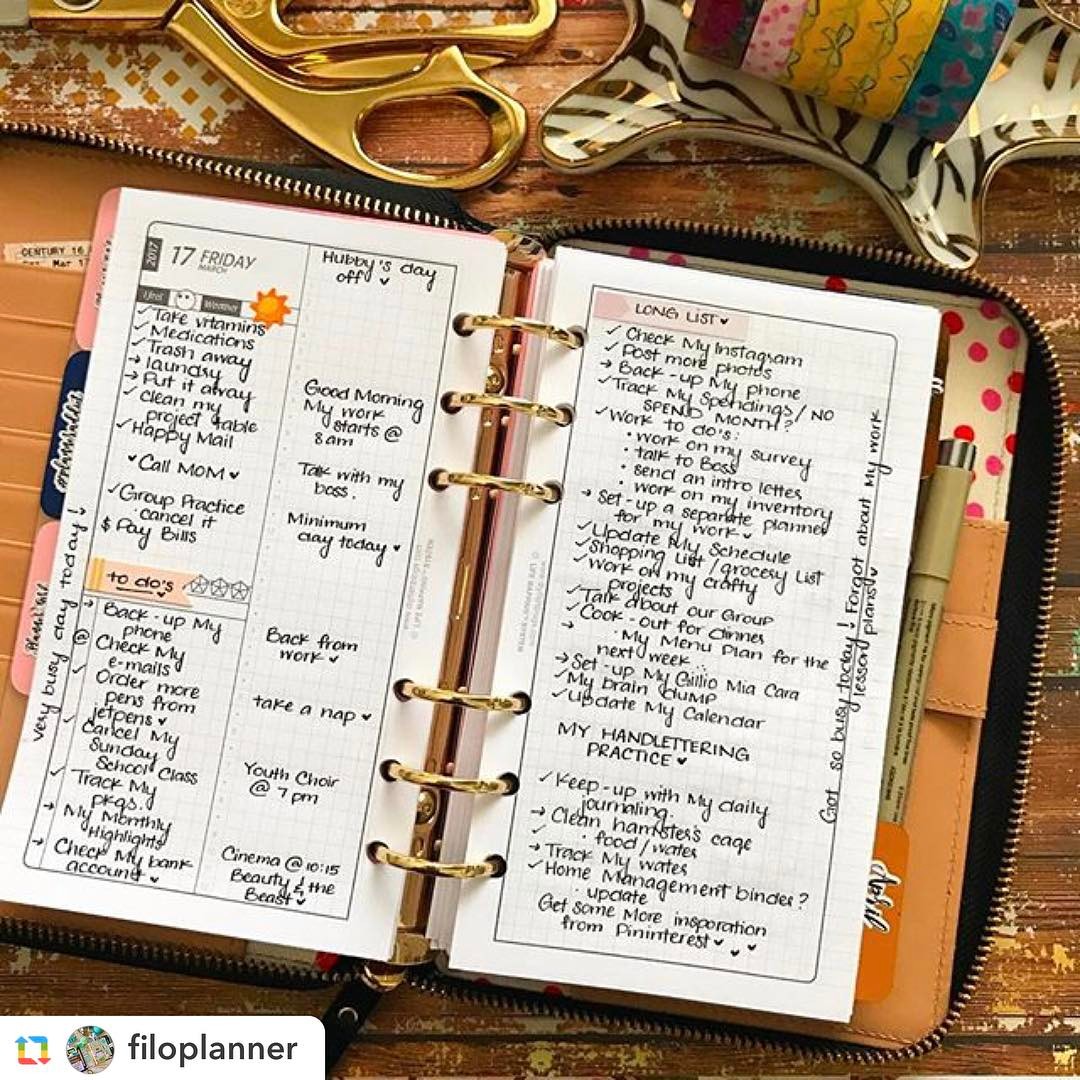 CENTURY 16
Mar 1
2017
17 FRIDAY
MARCH
I feel
Weather
✓ Take vitamins
✓ Medications
✓ Trash away
→ laundry
→ Put it away
✓ Clean my
project table
✓ Happy Mail
♥ Call MOM ♥
✓ Group Practice
· cancel it
$ Pay Bills
to do's
→ Back-up My
phone
@ Check My
e-mails
✓ Order more
pens from
jetpens ♥
✓ Cancel My
Sunday
School Class
✓ Track My
pkgs.
→ My Monthly
Highlights
→ Check My bank
account ♥
Very busy day today!
Hubby's day
off ♥
Good Morning
My work
starts @
8am
Talk with my
boss.
Minimum
day today ♥
Back from
work ♥
take a nap ♥
Youth Choir
@ 7pm
Cinema @ 10:15
Beauty & the
Beast ♥
LONG LIST ♥
✓ Check My Instagram
✓ Post more photos
→ Back-up My phone
✓ Track My Spendings / NO
SPEND MONTH?
✓ Work to do's:
• work on my survey
• talk to Boss
• send an intro letter
• work on my inventory
→ Set-up a separate planner
for my work ♥
✓ Update My Schedule
✓ Shopping List / grocery List
✓ Work on my crafty
projects
✓ Talk about our Group
✓ Cook-out for dinner
→ · My Menu Plan for the
next week...
→ Set-up My Gillio Mia Cara
✓ My brain dump
✓ Update My Calendar
MY HANDLETTERING
PRACTICE ♥
✓ Keep-up with My daily
journaling.
→ Clean hamster's cage
✓ · food / water
→ Track My water
✓ Home Management binder?
· update
Get some More insporation
from Pininterest ♥ ♥ ♥
Got so busy today! Forgot about My work
lesson plans ♥
April
filoplanner